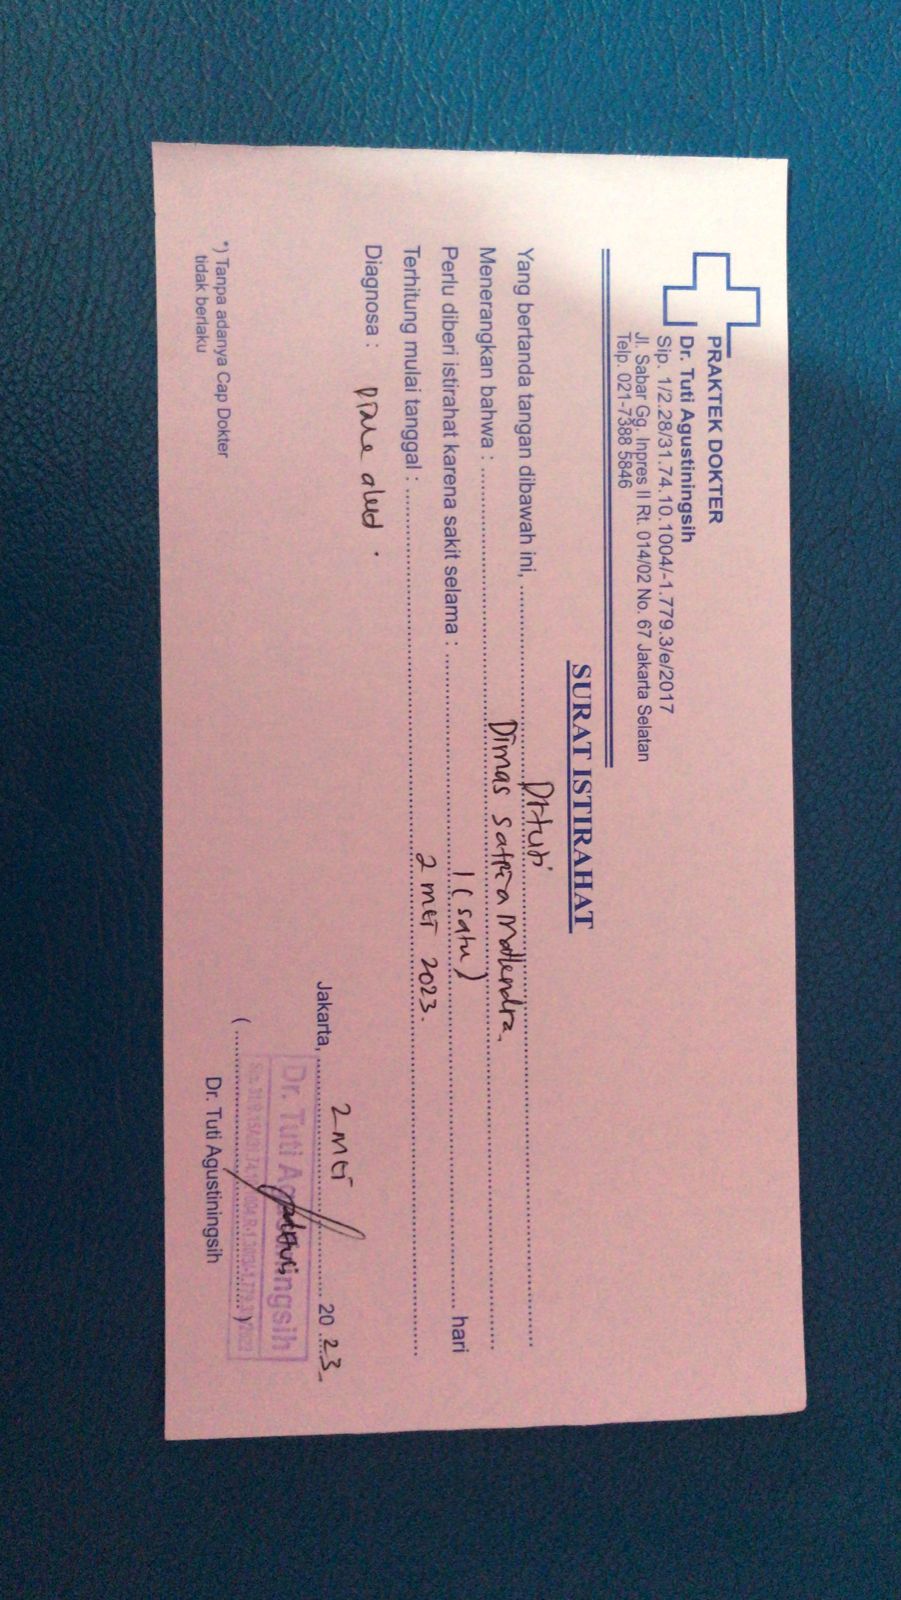 PRAKTEK DOKTER
Dr. Tuti Agustiningsih
Sip. 1/2.28/31.74.10.1004/-1.779.3/e/2017
Jl. Sabar Gg. Inpres II Rt. 014/02 No. 67 Jakarta Selatan
Telp. 021-7388 5846
SURAT ISTIRAHAT
Yang bertanda tangan dibawah ini, Dr tuti
Menerangkan bahwa : Dimas Satria Mahendra
Perlu diberi istirahat karena sakit selama : 1 (satu) hari
Terhitung mulai tanggal : 2 mei 2023.
Diagnosa : Diare
Jakarta, 2 mei 2023
Dr. Tuti Agustiningsih
Dr. Tuti Agustiningsih
*) Tanpa adanya Cap Dokter
tidak berlaku